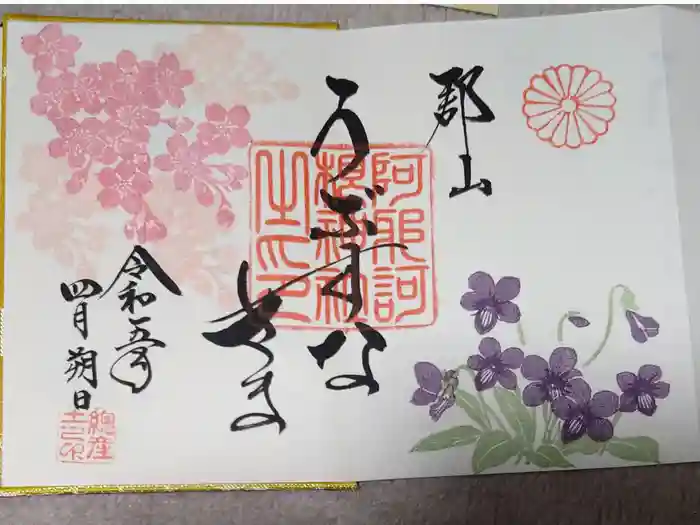 郡山
うぶすな
さま
阿耶訶
根神社
之印
令和五年
四月朔日